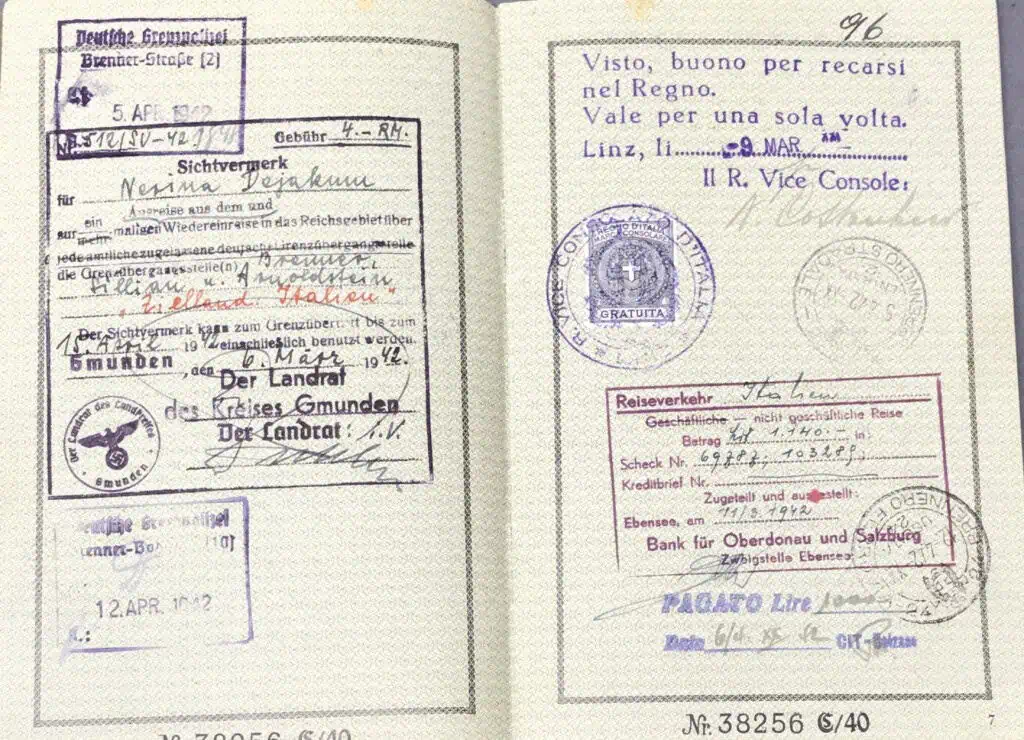 Deutsche Grenzpolizei
Brenner-Straße [2]
5. APR. 1942
Nr. 512/SV-42 Gebühr 4.- RM.
Sichtvermerk
für Nerina Dejakum
Ausreise aus dem und
zur ein mehr maligen Wiedereinreise in das Reichsgebiet über
jede amtliche zugelassene deutsche Grenzübergangsstelle
die Grenzübergangsstelle(n) Brenner,
Sillian u. Arnoldstein
"Zielland Italien"
Der Sichtvermerk kann zum Grenzübertritt bis zum
15. April 1942 einschließlich benutzt werden.
Gmunden, den 6. März 1942.
Der Landrat
des Kreises Gmunden
Der Landrat: i.V.
Der Landrat des Landkreises
Gmunden
Deutsche Grenzpolizei
Brenner-Bahnhof [10]
12. APR. 1942
Nr. 38256 C/40
96
Visto, buono per recarsi
nel Regno.
Vale per una sola volta.
Linz, li -9 MAR
Il R. Vice Console:
R. VICE CONSOLATO D'ITALIA
REGNO D'ITALIA
GRATUITA
BRENNERO STRADALE
Reiseverkehr Italien
Geschäftliche — nicht geschäftliche Reise
Betrag 1.140.- in:
Scheck Nr. 69787, 103289,
Kreditbrief Nr.
Zugeteilt und ausgestellt:
Ebensee, am 11/3. 1942
Bank für Oberdonau und Salzburg
Zweigstelle Ebensee
BRENNERO
PAGATO Lire 1000
Data 6/4 XX CIT-Bolzano
Nr. 38256 C/40
7